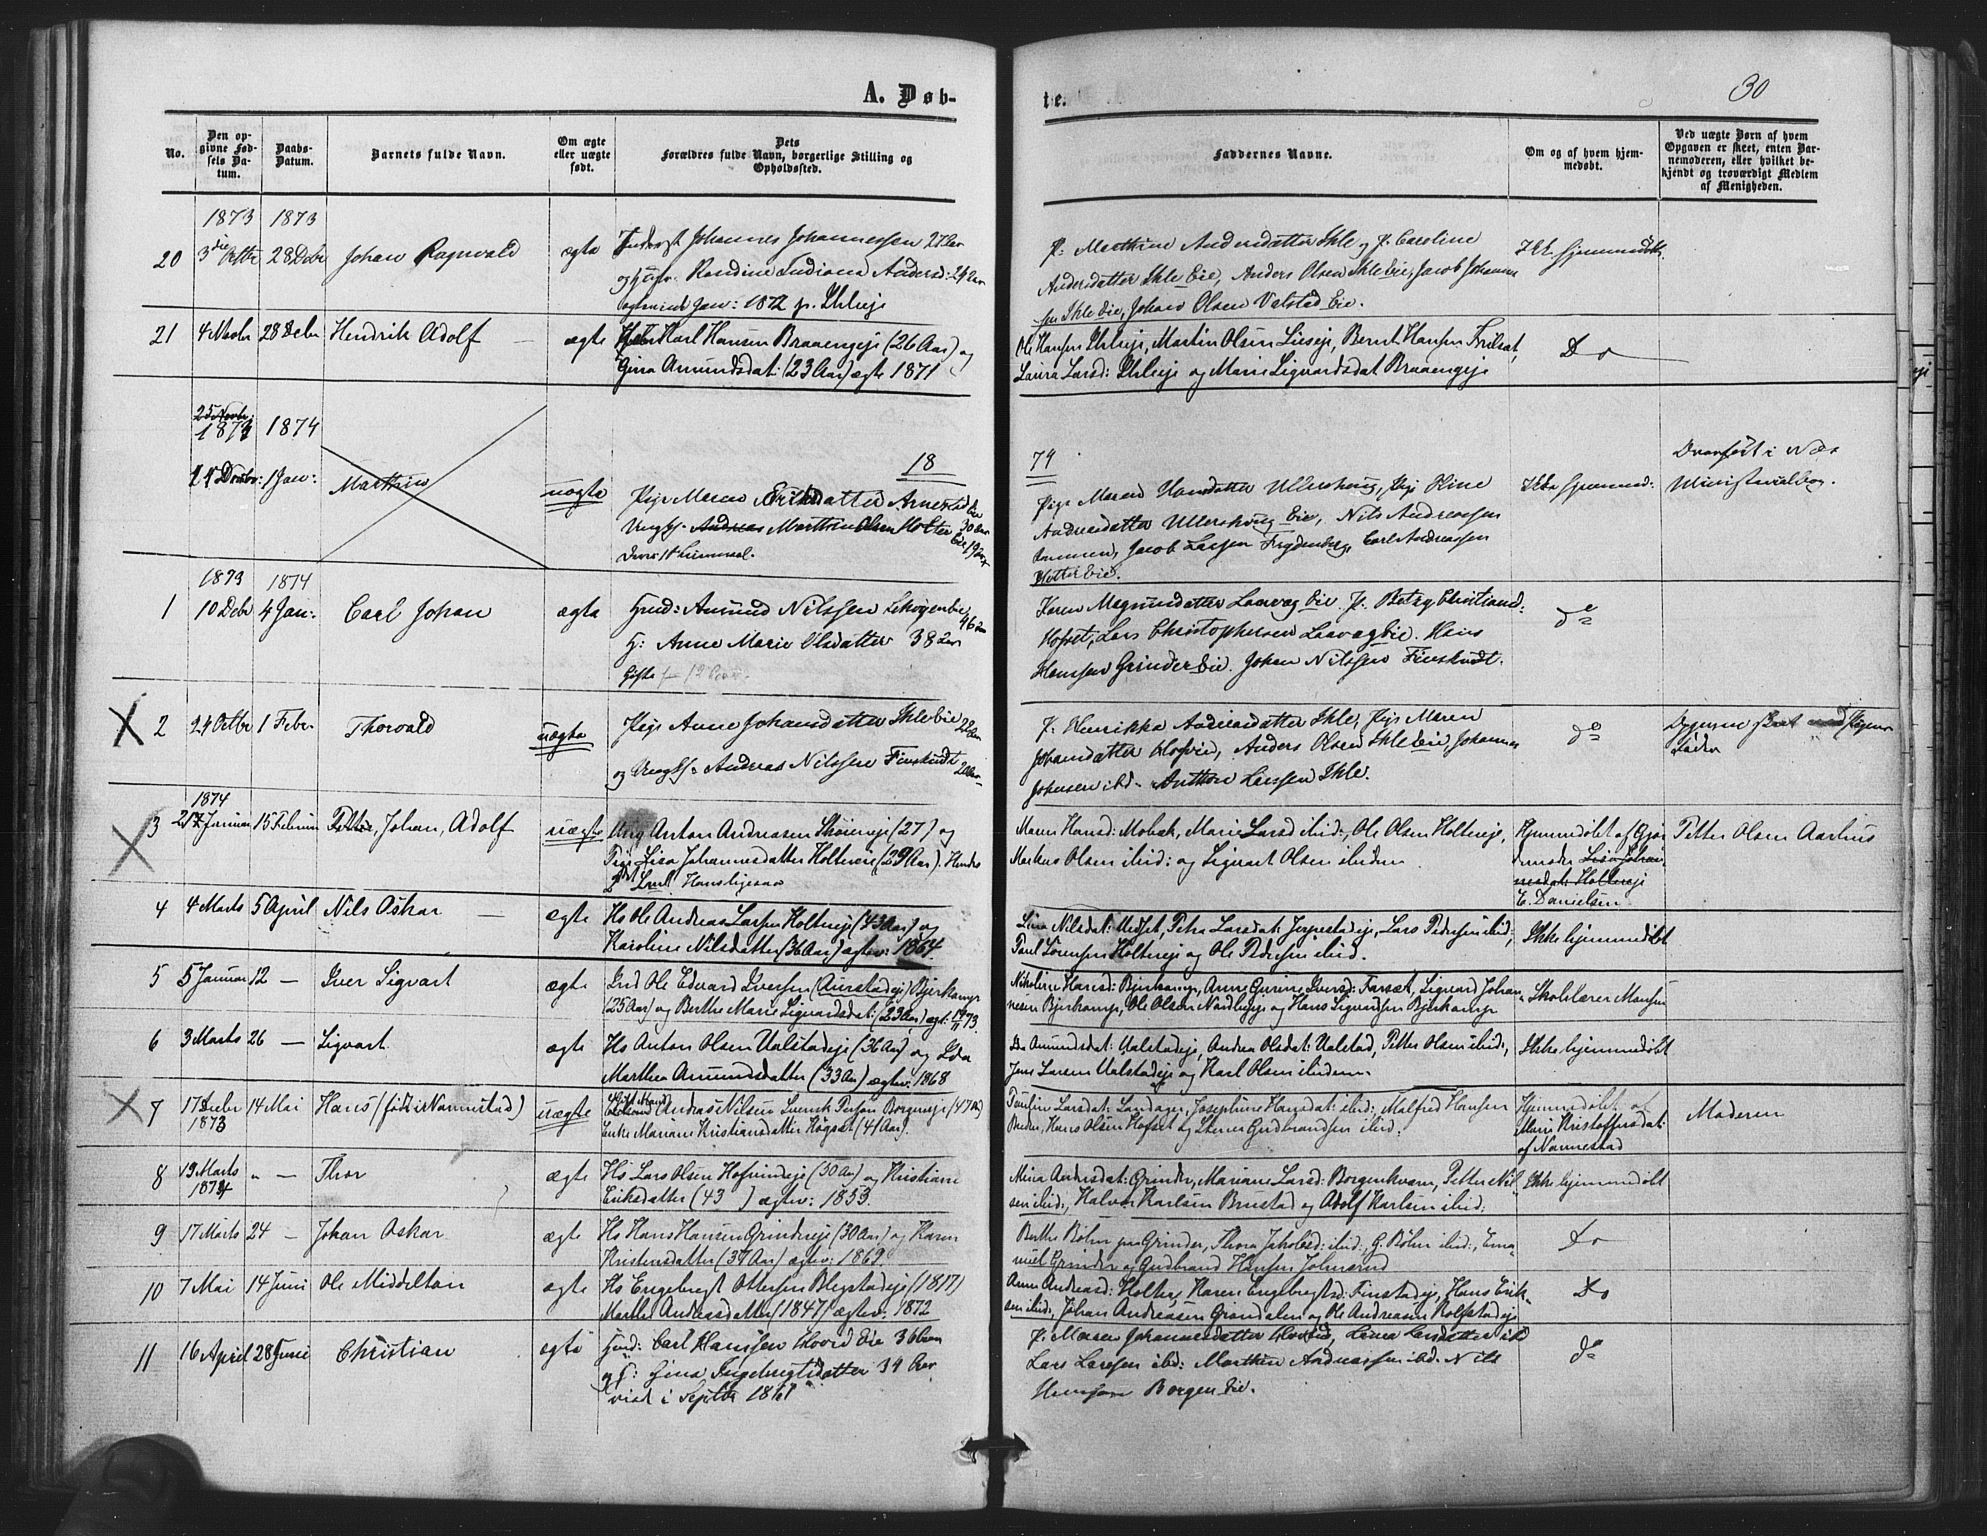 A. Døb-
te.
30
No.
Den op-
givne Fød-
sels Da-
tum.
Daabs-
Datum.
Barnets fulde Navn.
Om ægte
eller uægte
født.
Dets
Forældres fulde Navn, borgerlige Stilling og
Opholdssted.
Faddernes Navne.
Om og af hvem hjem-
medøbt.
Ved uægte Børn af hvem
Opgaven er skeet, enten Bar-
nemoderen, eller hvilket be-
kjendt og troværdigt Medlem
af Menigheden.
1873 1873
20 3die Octbr 28 Debr Johan Ragnvald ægte Johannes Johannessen 27 Aar
Andersd: 24 Aar
Jan: 1872
P: Marthine Andersdatter Ihle og P. Caroline
Andersdatter Ihle Eie, Anders Olsen Ihle Eie, Jacob Johanne
sen Ihle Eie, Johan Olsen Valstad Eie.
Ikke hjemmedøbt
21 4 Novbr 28 Debr Hendrik Adolf ægte Karl Hansen Braaengeje (26 Aar) og
Gina Amundsdat: (23 Aar) ægtv 1871
Ole Hansen Ihleeje, Martin Olsen Lieeje, Bernt Hansen
Laura Larsd: Ihleeje og Marie Sigvardsdat Braaengeje
Do
25 Novbr
1873 1874
1 Jan: Marthin
18
74
uægte Pige Maren Eriksdatter Arnestad Eie
30 Aar
Ungkf. Andreas Marthin Olsen Holter
Eie 19 Aar
Pige Maren Hansdatter Ullershoug, Pige Oline
Andreasdatter Ullershoug Eie, Nils Andreassen
Jacob Larsen Frydenberg, Carl Andreassen
Holter Eie.
Ikke hjemmed:
Overført i Næs
Ministerialbog.
1873 1874
1 10 Debr 4 Jan: Carl Johan ægte Hmd: Amund Nilssen
46 Aar
H: Anne Marie Olsdatter 38 Aar
Gifte 12 Aar.
Karen Magnusdatter Laavæg Eie. P. Betzy Christiansd:
Hofset, Lars Christophersen Laavæg Eie. Hans
Hansen Grinder Eie. Johan Nilssen Finskudt.
do
2 24 Octbr 1 Febr Thorvald uægte Pige Anne Johansdatter Ihle Eie 22 Aar
og Ungkf: Andreas Nilssen Finskudt 20 Aar
P. Henrikke Andreasdatter Ihle, Pige Maren
Johansdatter Hofvin, Anders Olsen Ihle Eie, Johannes
Johnsen ibd. Anthon Larssen Ihle.
do
1874
3 Januar 15 Februar Petter, Johan, Adolf uægte Ung Anton Andreasen Skøieneje (27) og
Pige Lisa Johannesdatter Holtereje (29 Aar). Hendes
2det
Maren Hansd: Mobæk, Marie Larsd ibid:, Ole Olsen Holtereje,
Markus Olsen ibid: og Sigvart Olsen ibidem
Hjemmedøbt af Gjor
demoder Lisa Johan
nesdat: Holtereje
E. Danielsen
Petter Olsen Aarhus
4 4 Marts 5 April Nils Oskar — ægte Hs Ole Andreas Larsen Holtereje (43 Aar) og
Karoline Nilsdatter (36 Aar) ægtev: 1864.
Lina Nilsdat: Medset, Petra Larsdat: Jerpestadeje, Lars Pedersen ibid:,
Paul Sørensen Holtereje og Ole Pedersen ibid.
Ikke hjemmedøbt
5 5 Januar 12 — Iver Sigvart ægte Ind Ole Edvard Iversen (Aurstadeje) Bjerkamp
(25 Aar) og Berthe Marie Sigvardsdat: (23 Aar) ægt: 1873.
Nikoline Hansd: Bjerkamp, Anne Gurine Iversd: Farsæt, Sigvard Johan-
nesen Bjerkamp, Ole Olsen Nordbyeje og Hans Sigvardsen Bjerkamp
Skolelærer Monsen
6 3 Marts 26 — Sigvart ægte Hs Anton Olsen Ualstadeje (36 Aar) og
Marthea Amundsdatter (33 Aar) ægtev: 1868
Amundsdat: Ualstadeje, Andrea Olsdat: Ualstad, Petter Olsen ibid:,
Jens Larsen Ualstadeje og Karl Olsen ibidem.
Ikke hjemmedøbt
7 17 Debr
1873 14 Mai Hans (født i Nannestad) uægte
Gift Mand
Andreas Nilsen Svensk Person Borgeneje (47 Aar)
Enke Mariane Kristiansdatter Høgset (41 Aar).
Pauline Larsdat: Landager, Josephine Hansdat: ibid:, Malfred Hansen
Hans Olsen Hofset og Stener Gudbrandsen ibid:
Hjemmedøbt af
Marie Kristoffersdat:
af Nannestad
Moderen
8 19 Marts
1874 " — Thor ægte Hs Lars Olsen Hofvindeje (50 Aar) og Kristiane
Eriksdatter (43 ) ægtev: 1853.
Mina Andersdat: Grinder, Mariane Larsd: Borgenkvern, Petter Nil-
sen ibid:, Halvor Karlsen Brustad og Adolf Karlsen ibid:
Ikke hjemmedøbt
9 17 Marts 24 — Johan Oskar ægte Hs Hans Hansen Grindereje (30 Aar) og Karen
Kristensdatter (37 Aar) ægtev: 1869.
Berthe Bøhn pr Grinder, Thora Jakobsd: ibid:, G. Bøhn ibid:, Ema-
nuel Grinder og Gudbrand Hansen Johnsrud
Do
10 7 Mai 14 Juni Ole Middelton ægte Hs Engebregt Ottersen Blegstadeje (1817)
Marthe Andreasdatter (1847) ægtev: 1872
Anne Andreasd: Holter, Karen Engebregtsd: Finstadeje, Hans Erik-
sen ibid:, Johan Andreasen Grøndalen og Ole Andreasen Rolfstadeje
Do
11 16 April 28 Juni Christian ægte Hmd: Carl Hanssen Hovid Eie 36 Aar
og H: Gina Ingebregtsdatter 34 Aar
viet i Septbr 1861
P. Maren Johannesdatter Hovid, Lina Larsdatter ibd
Lars Larssen ibd: Marthin Andreassen ibd. Nils
Hanssen Borgen Eie.
do